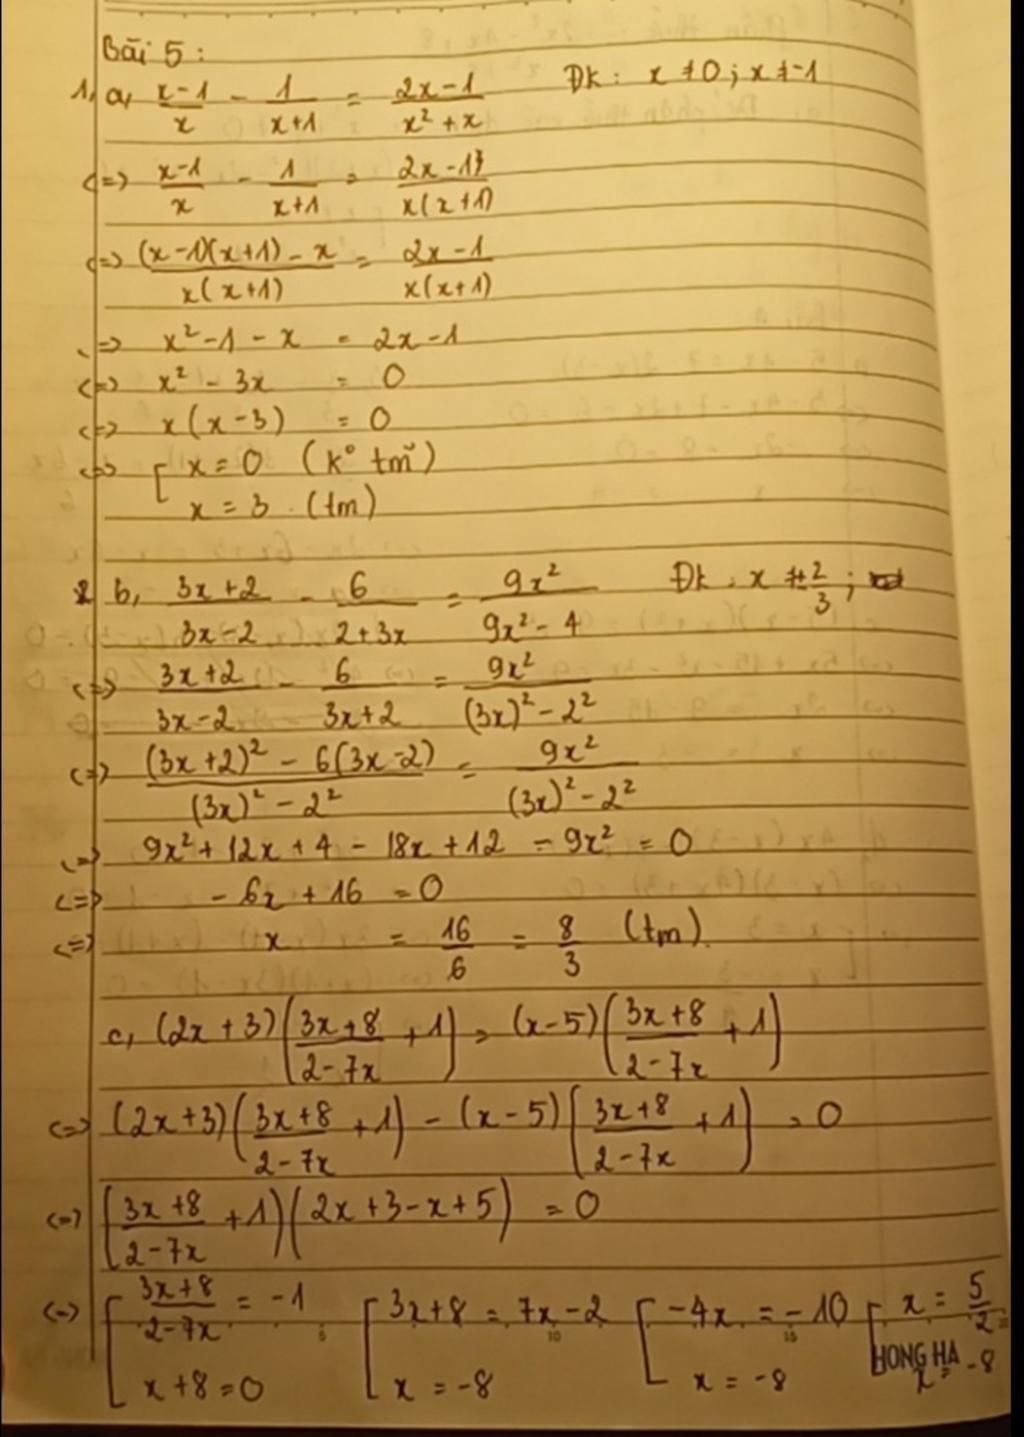 Bài 5 :
1, a, (x-1)/x - 1/(x+1) = (2x-1)/(x² + x) Đk : x ≠ 0 ; x ≠ -1
<=> (x-1)/x - 1/(x+1) = (2x-1)/(x(x+1))
<=> ((x-1)(x+1) - x)/(x(x+1)) = (2x-1)/(x(x+1))
=> x² - 1 - x = 2x - 1
<=> x² - 3x = 0
<=> x(x-3) = 0
<=> [ x = 0 (k° tm)
x = 3 . (tm)
b, (3x+2)/(3x-2) - 6/(2+3x) = 9x²/(9x² - 4) Đk : x ≠ ±2/3 ;
<=> (3x+2)/(3x-2) - 6/(3x+2) = 9x²/((3x)² - 2²)
<=> ((3x+2)² - 6(3x-2))/((3x)² - 2²) = 9x²/((3x)² - 2²)
<=> 9x² + 12x + 4 - 18x + 12 - 9x² = 0
<=> - 6x + 16 = 0
<=> x = 16/6 = 8/3 (tm).
c, (2x+3)((3x+8)/(2-7x) + 1) = (x-5)((3x+8)/(2-7x) + 1)
<=> (2x+3)((3x+8)/(2-7x) + 1) - (x-5)((3x+8)/(2-7x) + 1) = 0
<=> ((3x+8)/(2-7x) + 1)(2x+3-x+5) = 0
<=> [ (3x+8)/(2-7x) = -1 [ 3x+8 = 7x-2 [ -4x = -10 [ x = 5/2
5 10 15
HONG HA
x+8=0 x = -8 x = -8 x = -8